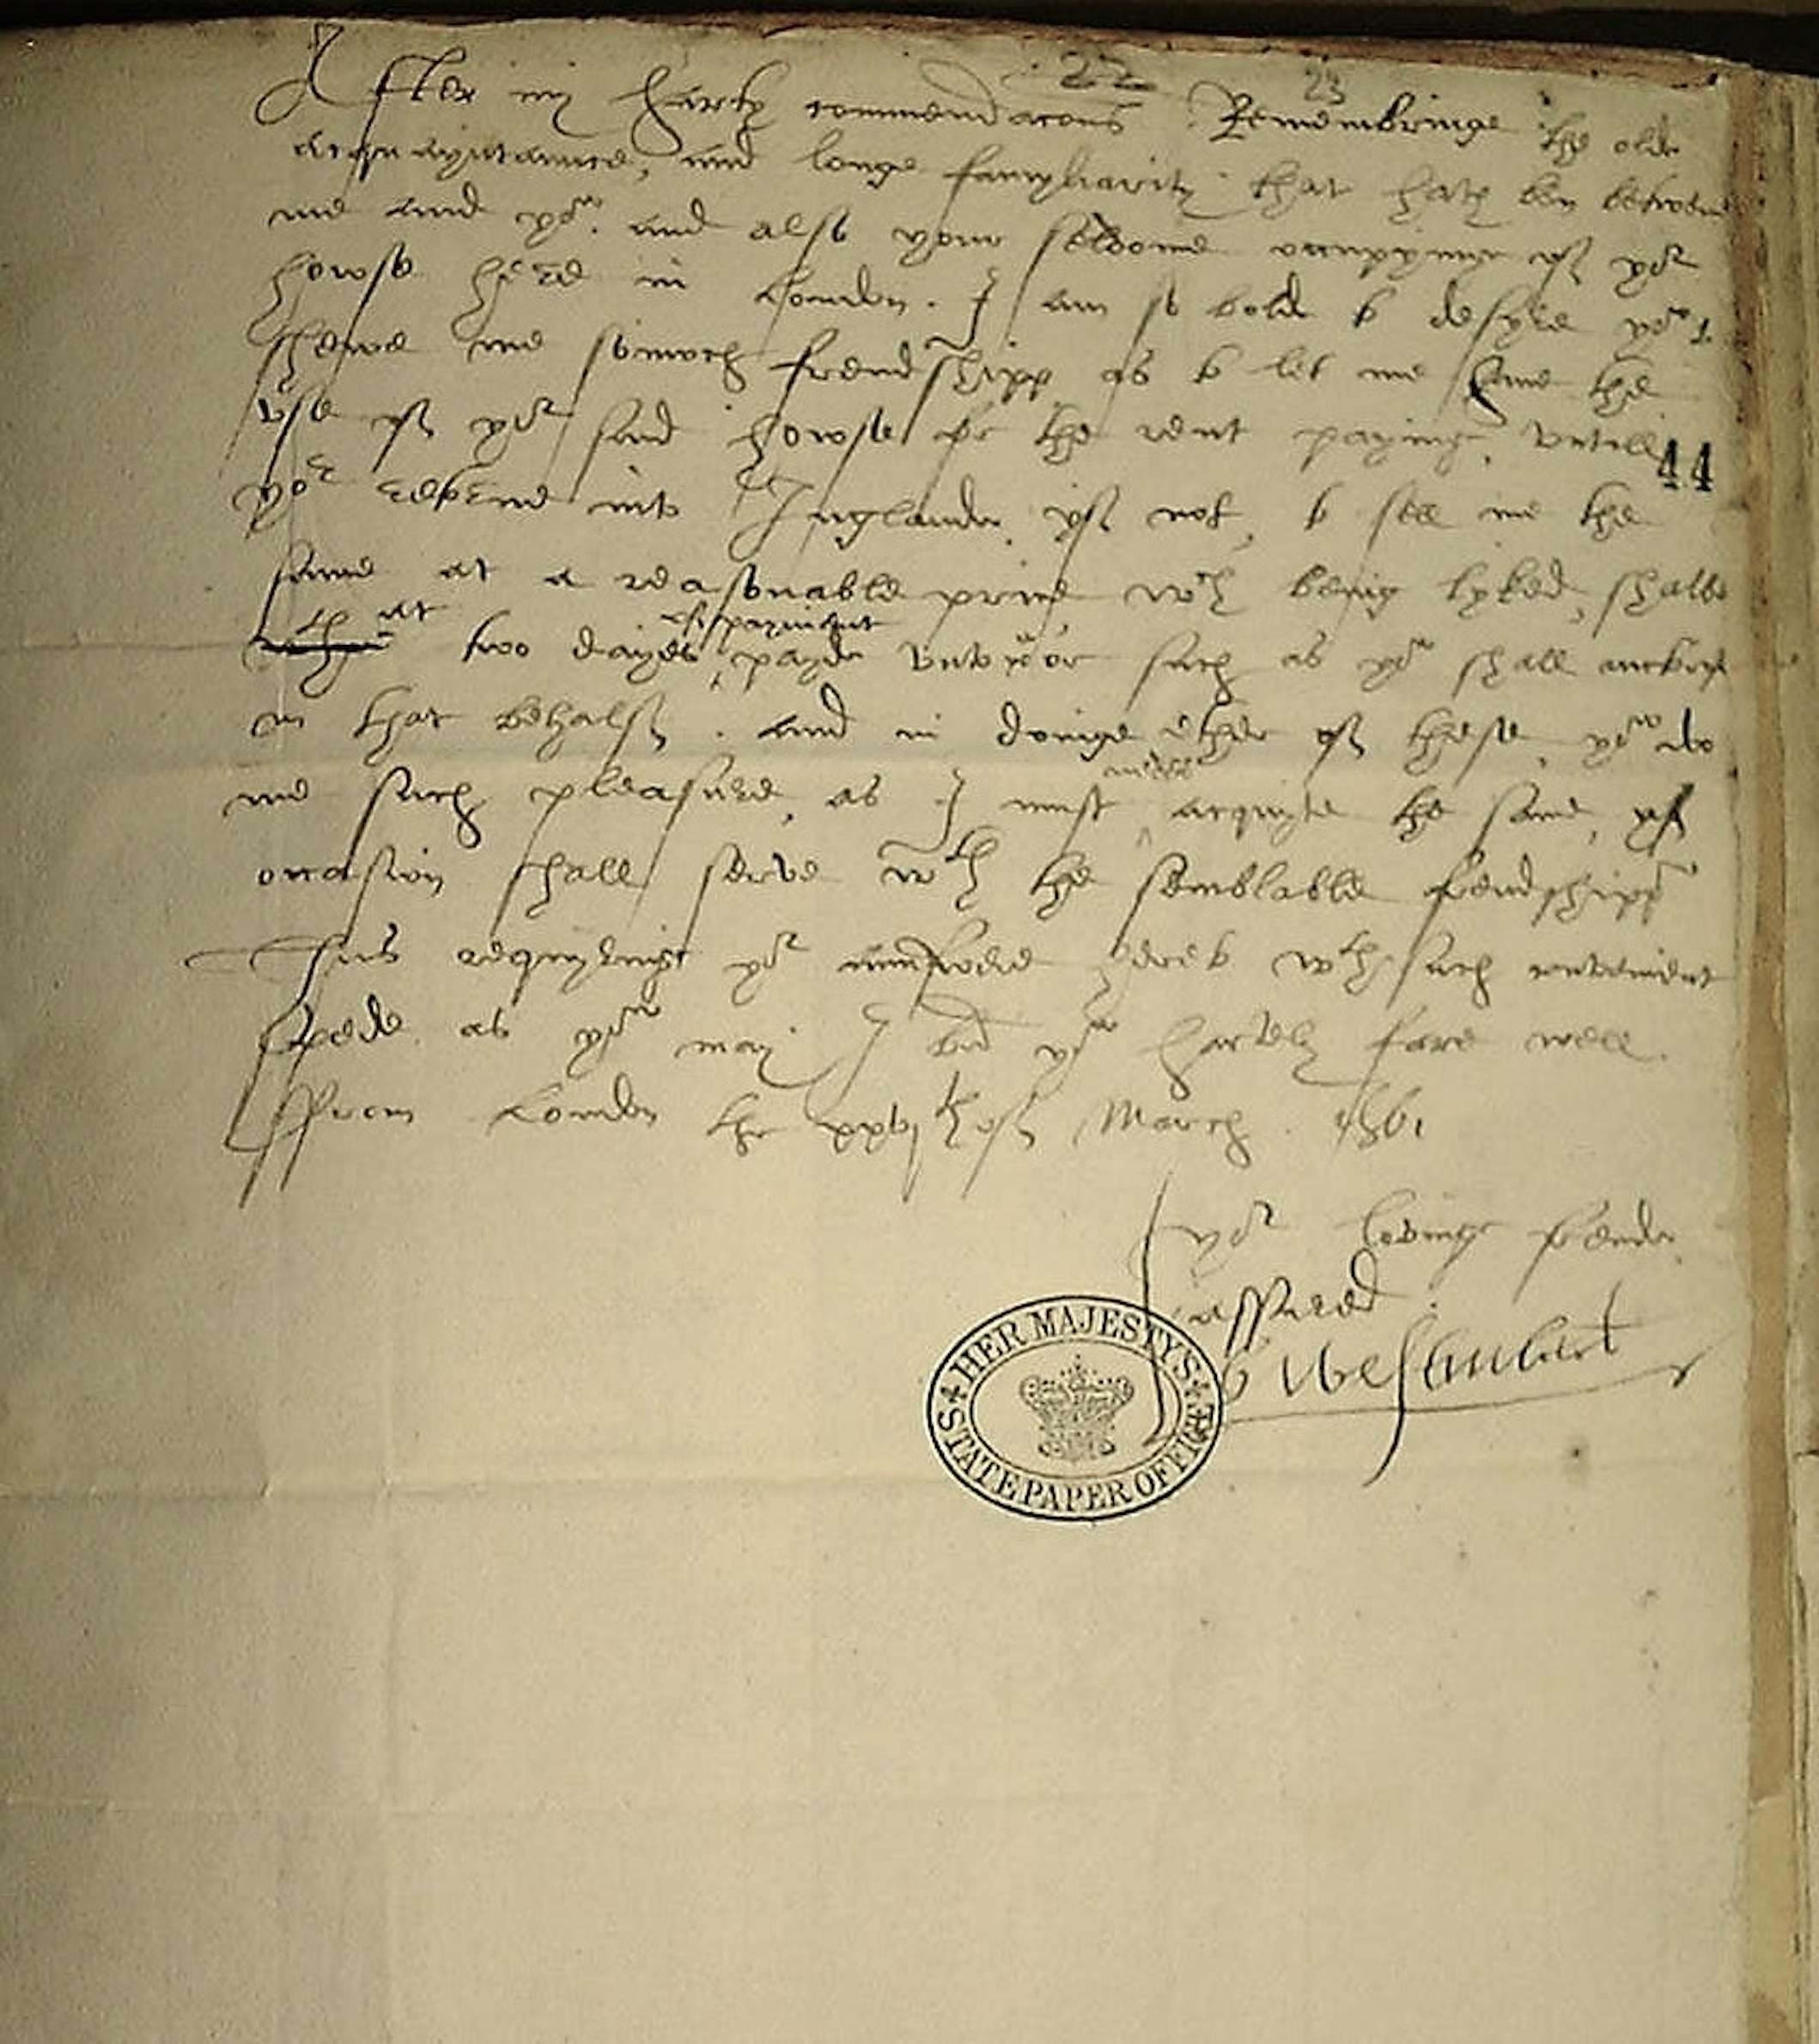 22 23
After my harty commendacons Remembringe the olde
acquayntaunce, and longe famyliarity that hath ben betwene
me and yow. and also your seldome occupyinge of yor
howse here in London. I am so bolde to desyre yow to
shewe me somoch frendshipp as to let me have the
use of yor said howse for the rent paying, untill
44
yor retorne into Inglande, yf not, to sell me the
same at a reasonable price, wch being lyked, shalbe
at two dayes of payment payde unto yow or such as yow shall
in that behalf. And in doinge ether of these, yow do
me such pleasure, as I must nedes acquyte the same, yf
occasion shall serve wth the semblable frendshipp
Thus requyringe yor answere hereto wth such convenient
spede as yow may I bid yow hartely fare well.
ffrom London the xxvjth of March. 1561
yor lovinge frende
assured.
HER MAJESTY'S
STATE PAPER OFFICE